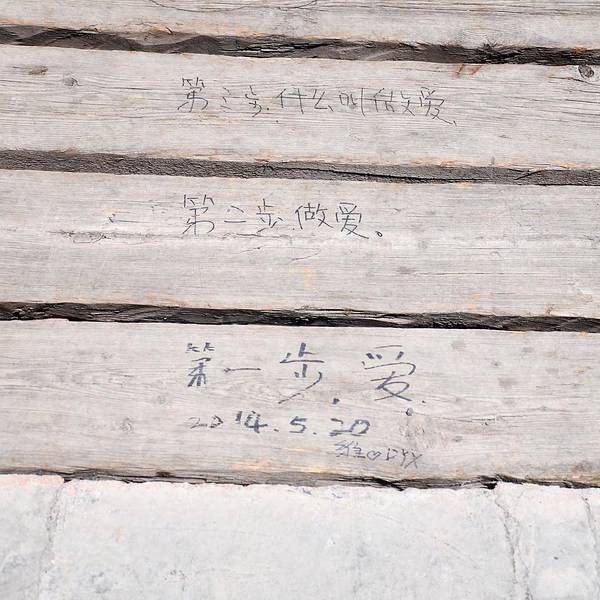 第三步,什么叫做爱,
第二步,做爱。
第一步,爱。
2014.5.20